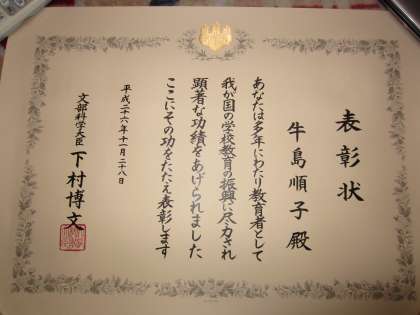 表彰状
牛島順子 殿
あなたは多年にわたり教育者として
我が国の学校教育の振興に尽力され
顕著な功績をあげられました
ここにその功をたたえ表彰します
平成二十六年十一月二十八日
文部科学大臣 下村博文